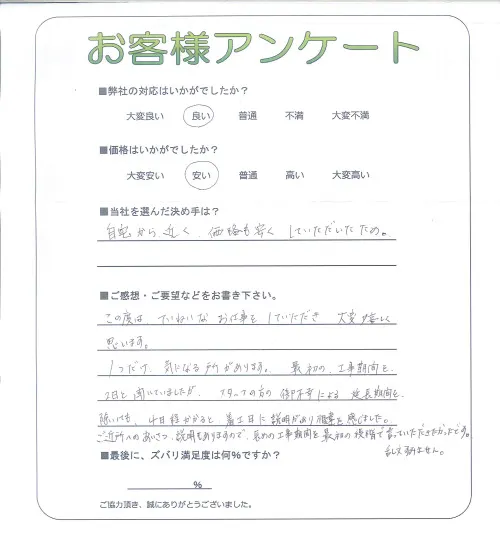 お客様アンケート
■弊社の対応はいかがでしたか？
大変良い 良い 普通 不満 大変不満
■価格はいかがでしたか？
大変安い 安い 普通 高い 大変高い
■当社を選んだ決め手は？
自宅から近く、価格も安くしていただいたため。
■ご感想・ご要望などをお書き下さい。
この度は、ていねいなお仕事をしていただき 大変嬉しく
思います。
1つだけ、気になる所があります。 最初の、工事期間を、
2日と聞いていましたが、スタッフの方の による 延長期間を、
除いても、4日程かかると着工日に説明があり を感じました。
ご近所へのあいさつ、説明もありますので、長めの工事期間を最初の で言っていただきたかったです。
乱文すみません。
■最後に、ズバリ満足度は何%ですか？
%
ご協力頂き、誠にありがとうございました。